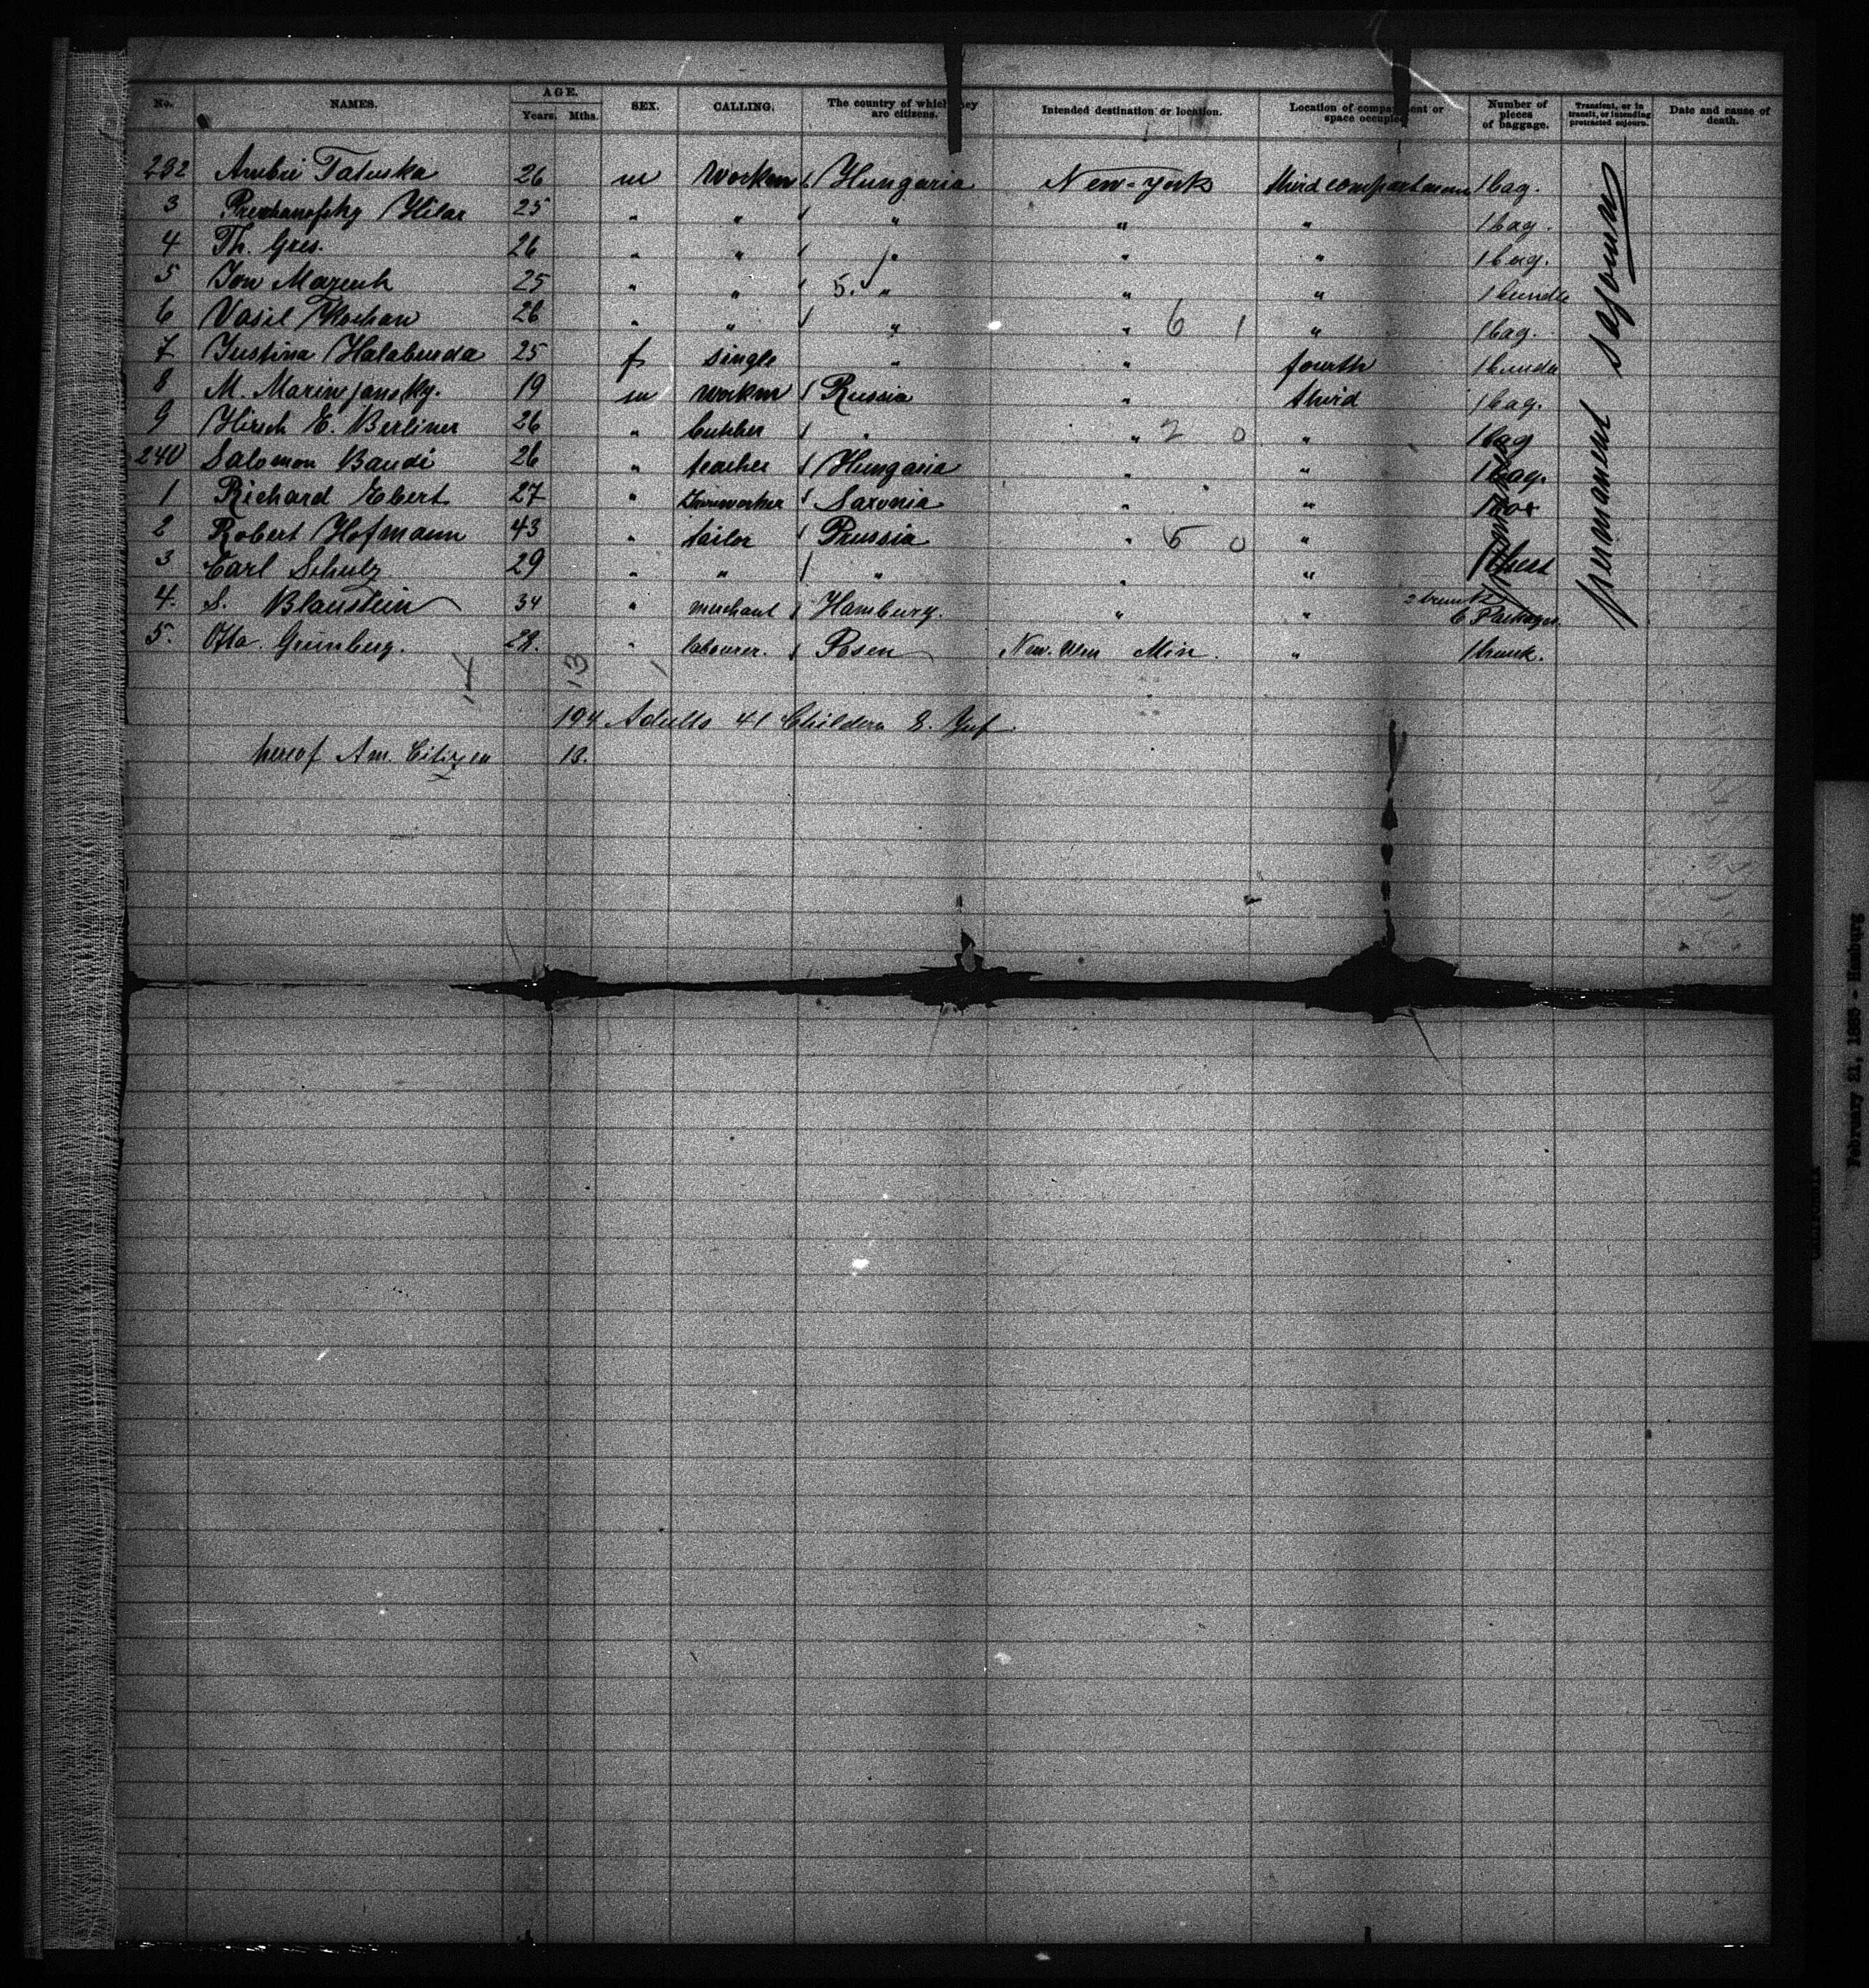 No. NAMES. AGE. Years. Mths. SEX. CALLING. The country of which they are citizens. Intended destination or location. Location of compartment or space occupied. Number of pieces of baggage. Transient, or in transit, or intending protracted sojourn. Date and cause of death.
232 Tatuska 26 m Workm Hungaria New-York third compartment 1 bag.
3 Hilar 25 " " " " " 1 bag.
4 Th. Gres. 26 " " " " " 1 bag.
5 Ion 25 " " 5. " " " 1 bundle
6 Vasil 26 " " " " 6 1 " 1 bag.
7 Justina Halabuda 25 f single " " fourth 1 bundle
8 M. 19 m workm Russia " third 1 bag.
9 Hirsch E. Berliner 26 " butcher " " 2 0 " 1 bag
240 Salomon Bandi 26 " teacher Hungaria " " 1 bag.
1 Richard Ebert 27 " Saxonia " " 1 box
2 Robert Hofmann 43 " tailor Prussia " 5 0 "
3 Carl Schulz 29 " " " " " 1 chest
4. S. Blaustein 34 " merchant Hamburg. " " 2 trunks 6 Packages.
5. Otto Grünberg. 28. " labourer. Posen New. Ulm Min. " 1 trunk.
permanent sojourn
13 1
194 Adults 41 Childern 8. Inf.
hereof Am. Citizen 13.
February 21, 1885 - Hamburg